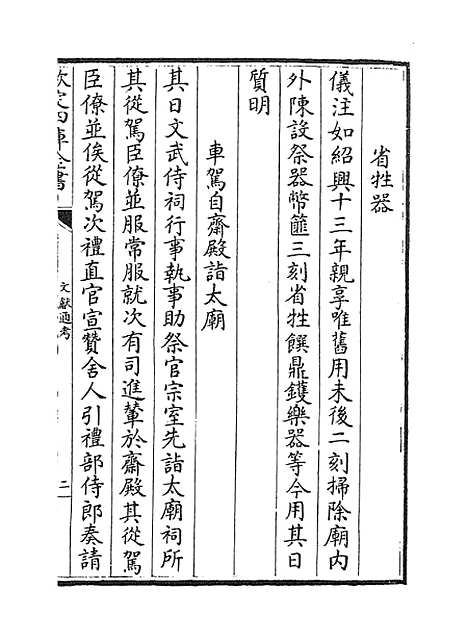 省牲器
儀注如紹興十三年親享唯舊用未後二刻掃除廟内
外陳設祭器幣篚三刻省牲饌鼎鑊樂器等今用其日
質明
車駕自齋殿詣太廟
其日文武侍祠行事執事助祭官宗室先詣太廟祠所
其從駕臣僚並服常服就次有司進輦於齋殿其從駕
臣僚並俟從駕次禮直官宣贊舍人引禮部侍郎奏請
欽定四庫全書
文獻通考
二